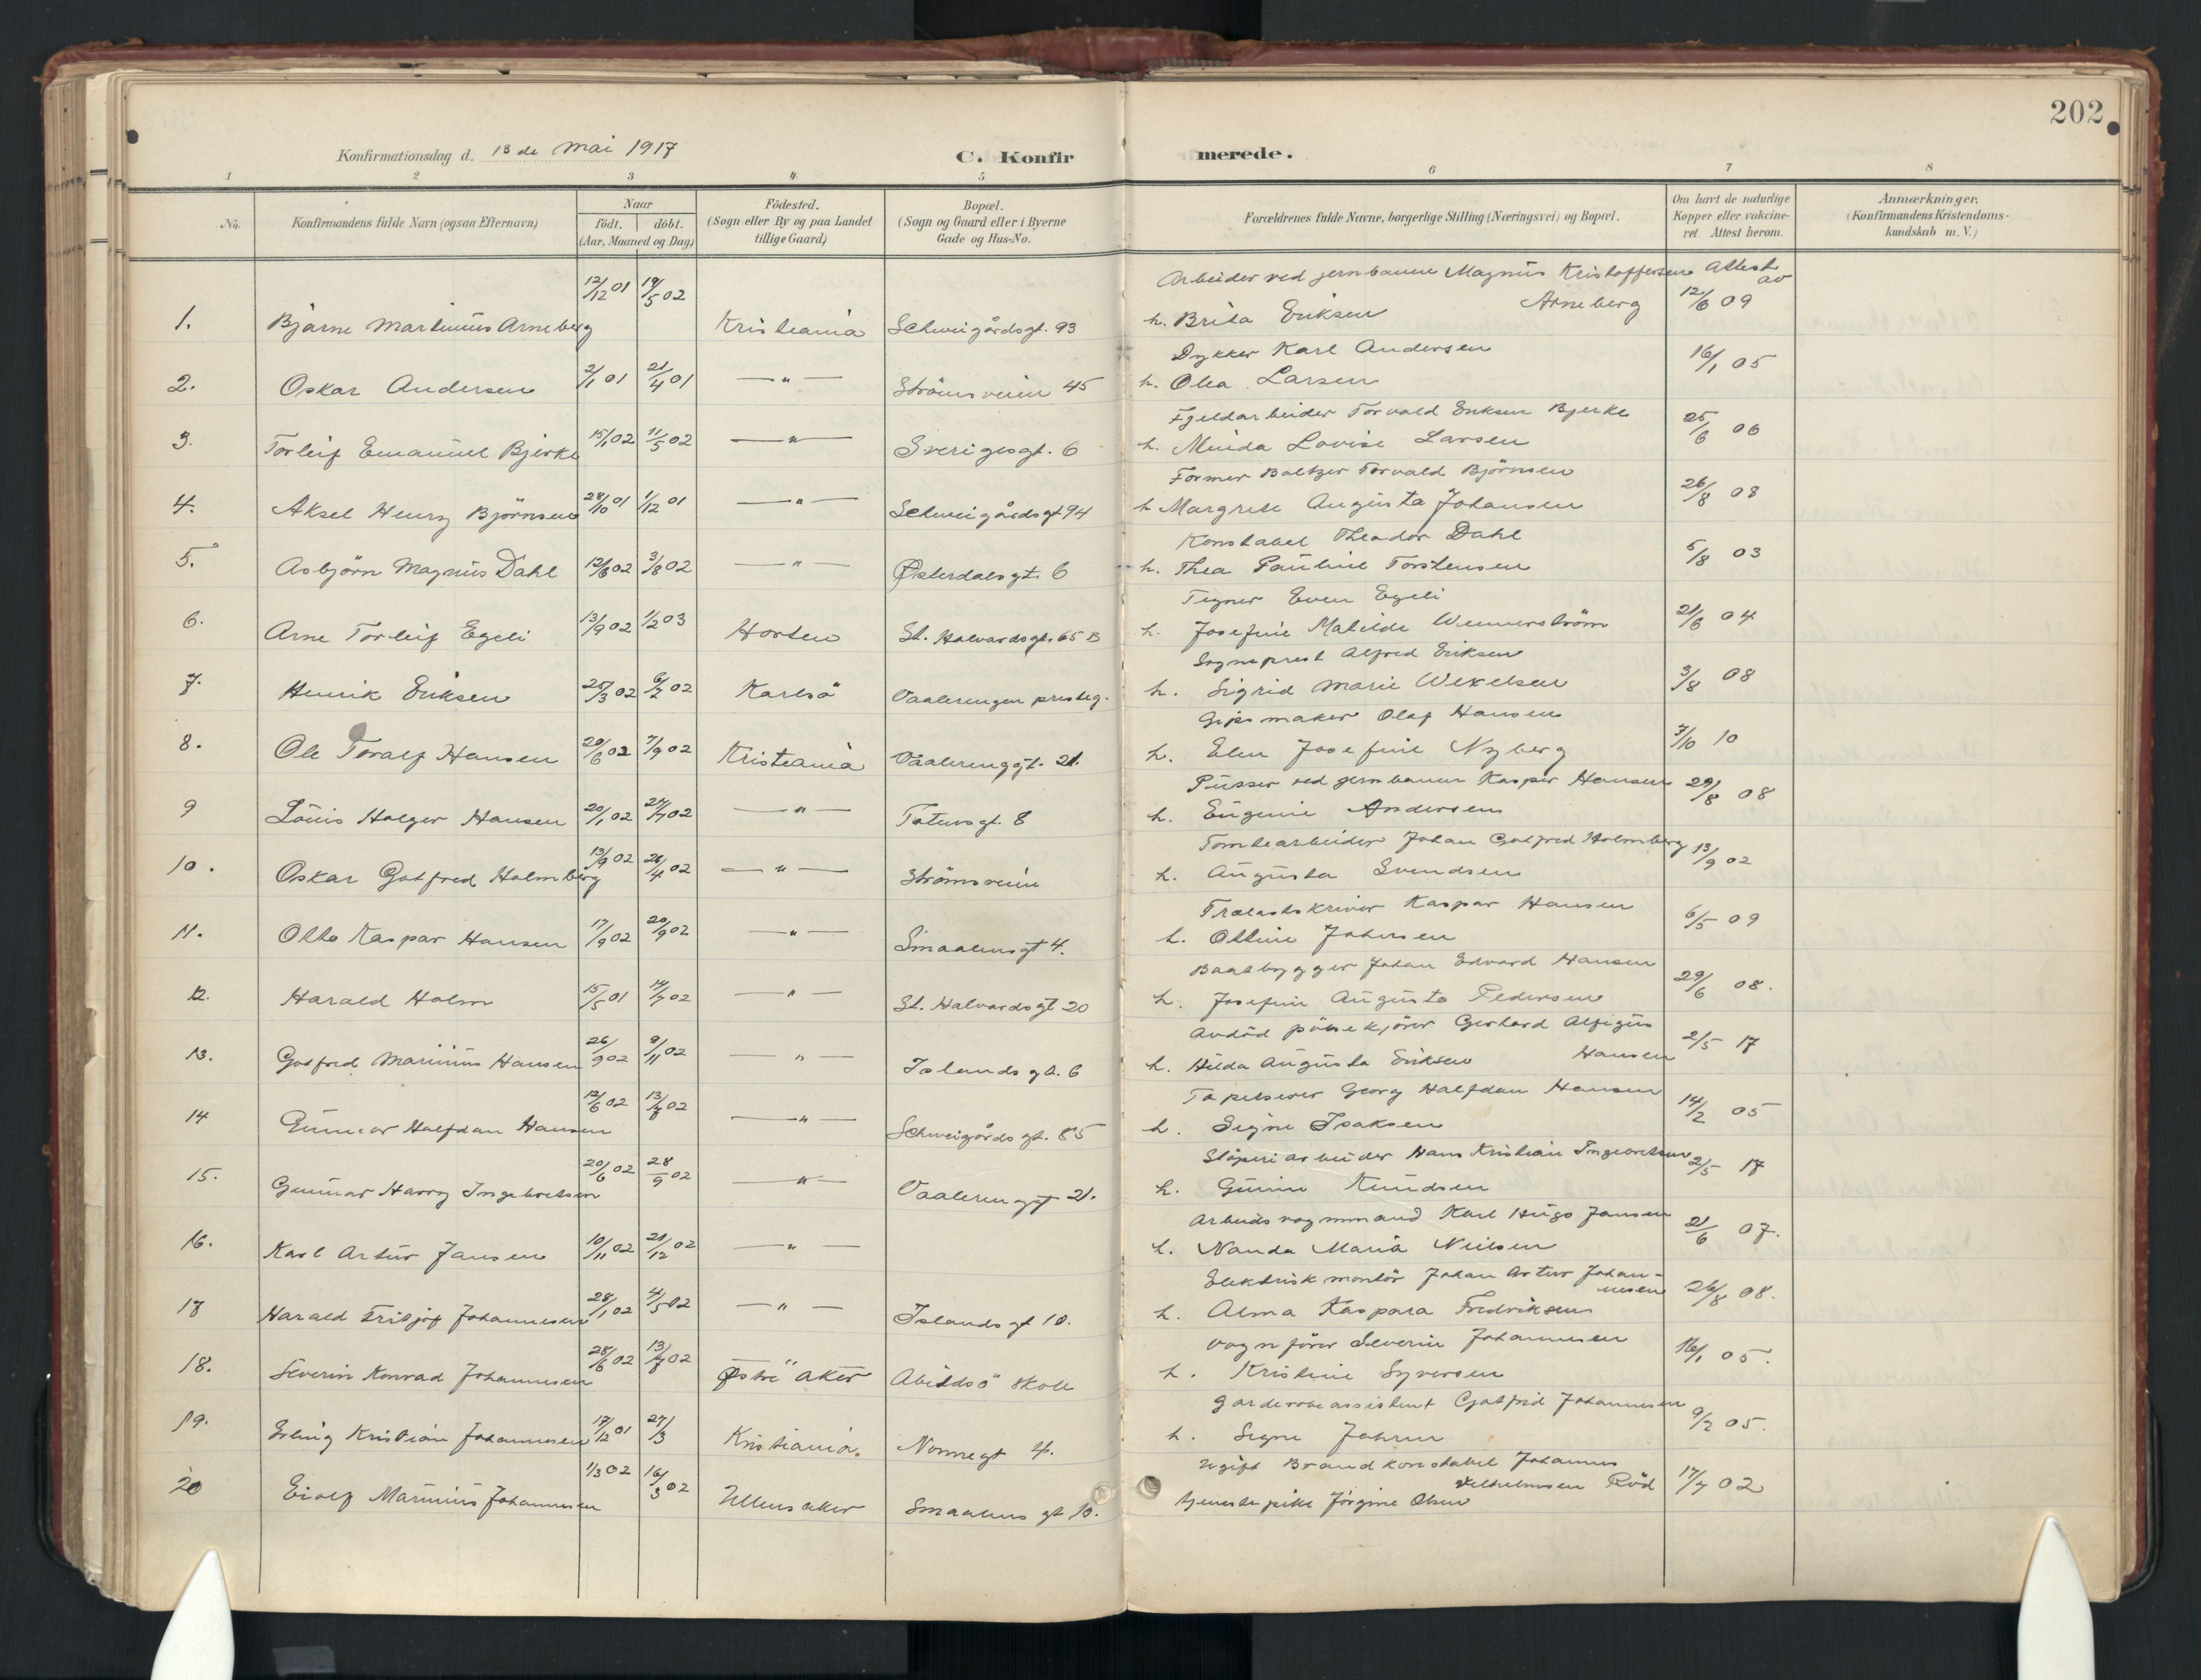 202
Konfirmationsdag d. 13de Mai 1917
C. Konfirmerede.
1 2 3 4 5 6 7 8
No.
Konfirmandens fulde Navn (ogsaa Efternavn)
Naar
födt. | döbt.
(Aar, Maaned og Dag)
Födested.
(Sogn eller By og paa Landet
tillige Gaard)
Bopæl.
(Sogn og Gaard eller i Byerne
Gade og Hus-No.
Forældrenes fulde Navne, borgerlige Stilling (Næringsvei) og Bopæl.
Om havt de naturlige
Kopper eller vakcine-
ret. Attest herom.
Anmærkninger.
(Konfirmandens Kristendoms-
kundskab m. V.)
Arbeider ved jernbanen Magnus Kristoffersen Attest av
1. Bjarne Martinius Arneberg 12/12 01 19/5 02 Kristiania Schweigårdsgt. 93 h. Brita Eriksen Arneberg 12/6 09
Dykker Karl Andersen
2. Oskar Andersen 2/1 01 21/4 01 — " — Strömsveien 45 h. Olea Larsen 16/1 05
Fjeldarbeider Torvald Eriksen Bjerke
3. Torleif Emanuel Bjerke 15/1 02 11/5 02 — " — Sverigesgt. 6 h. Minda Lovise Larsen 25/6 06
Former Baltzer Torvald Björnsen
4. Aksel Henry Björnsen 28/10 01 1/12 01 — " — Schweigårdsgt 94 h Margrete Augusta Johansen 26/8 08
Konstabel Theador Dahl
5. Asbjörn Magnus Dahl 12/6 02 3/8 02 — " — Østerdalsgt. 6 h. Thea Pauline Torstensen 5/8 03
Tegner Even Egeli
6. Arne Torleif Egeli 13/9 02 1/2 03 Horten St. Halvardsgt. 65 B h. Josefine Matilde Wennerström 21/6 04
Sogneprest Alfred Eriksen
7. Henrik Eriksen 25/3 02 6/7 02 Karlsö Vaalerengen presteg. h. Sigrid Marie Wexelsen 3/8 08
Gipsmaker Olaf Hansen
8. Ole Toralf Hansen 20/6 02 7/9 02 Kristiania Vaalerenggt. 21. h. Elen Josefine Nyberg 7/10 10
Pusser ved jernbanen Kasper Hansen
9 Louis Holger Hansen 20/1 02 27/7 02 — " — Totensgt. 8 h. Eugenie Andersen 29/8 08
Tomtearbeider Johan Gotfred Holmberg
10. Oskar Gotfred Holmberg 13/9 02 26/4 02 — " — Strömsveien h. Augusta Svendsen 13/9 02
Trælastskriver Kaspar Hansen
11. Otto Kaspar Hansen 17/9 02 20/9 02 — " — Smaalensgt 4. h. Ottine Johnsen 6/5 09
Baatbygger Johan Edvard Hansen
12. Harald Holm 15/5 01 14/7 02 — " — St. Halvardsgt 20 h. Josefine Augusta Pedersen 29/6 08.
Avdöd pölsekjörer Gerhard Alfigus
13. Gotfred Marinius Hansen 26/9 02 9/11 02 — " — Islandsgt. 6 h. Hilda Augusta Eriksen Hansen 2/5 17
Tapetserer Georg Halfdan Hansen
14 Gunnar Halfdan Hansen 12/6 02 13/7 02 — " — Schweigårdsgt. 85 h. Signe Isaksen 14/2 05
Sliperiarbeider Hans Kristian Ingebretsen
15. Gunnar Harry Ingebretsen 20/6 02 28/9 02 — " — Vaalerenggt 21. h. Gurine Knudsen 2/5 17
Arbeidsvognmand Karl Hugo Jansen
16. Karl Artur Jansen 10/11 02 21/12 02 — " — h. Nanda Maria Nielsen 21/6 07.
Elektrisk montör Johan Artur Johan-
17 Harald Fritjof Johannesen 28/1 02 4/5 02 — " — Islandsgt 10. h. Alma Kaspara Fredriksen nesen 26/8 08.
Vognförer Severin Johannesen
18. Severin Konrad Johannesen 28/6 02 13/7 02 Østre Aker Abildsö skole h. Kristine Syversen 16/1 05.
Garderobeassistent Gotfrid Johannesen
19. Erling Kristian Johannesen 17/12 01 27/3 Kristiania. Nonnegt 4. h. Signe Johnsen 9/2 05.
Ugift Brandkonstabel Johannes
20 Eiolf Marinius Johannesen 1/3 02 16/3 02 Ullensaker Smaalensgt 10. Vilhelmsen Röd 17/7 02
tjenestepike Jörgine Olsen